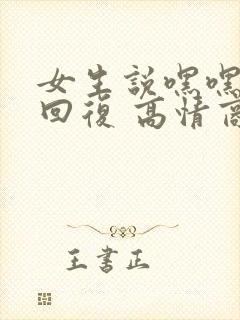 女生説嘿嘿
回復 高情商
王書正